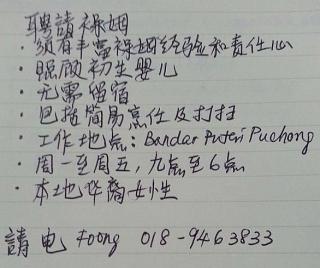 聘請褓姆
· 须有丰富褓姆经验和责任心
· 照顾初生婴儿
· 无需留宿
· 包括简易烹饪及打扫
· 工作地点: Bandar Puteri Puchong
· 周一至周五, 九点至6点
· 本地华裔女性
請电 Foong 018-9463833